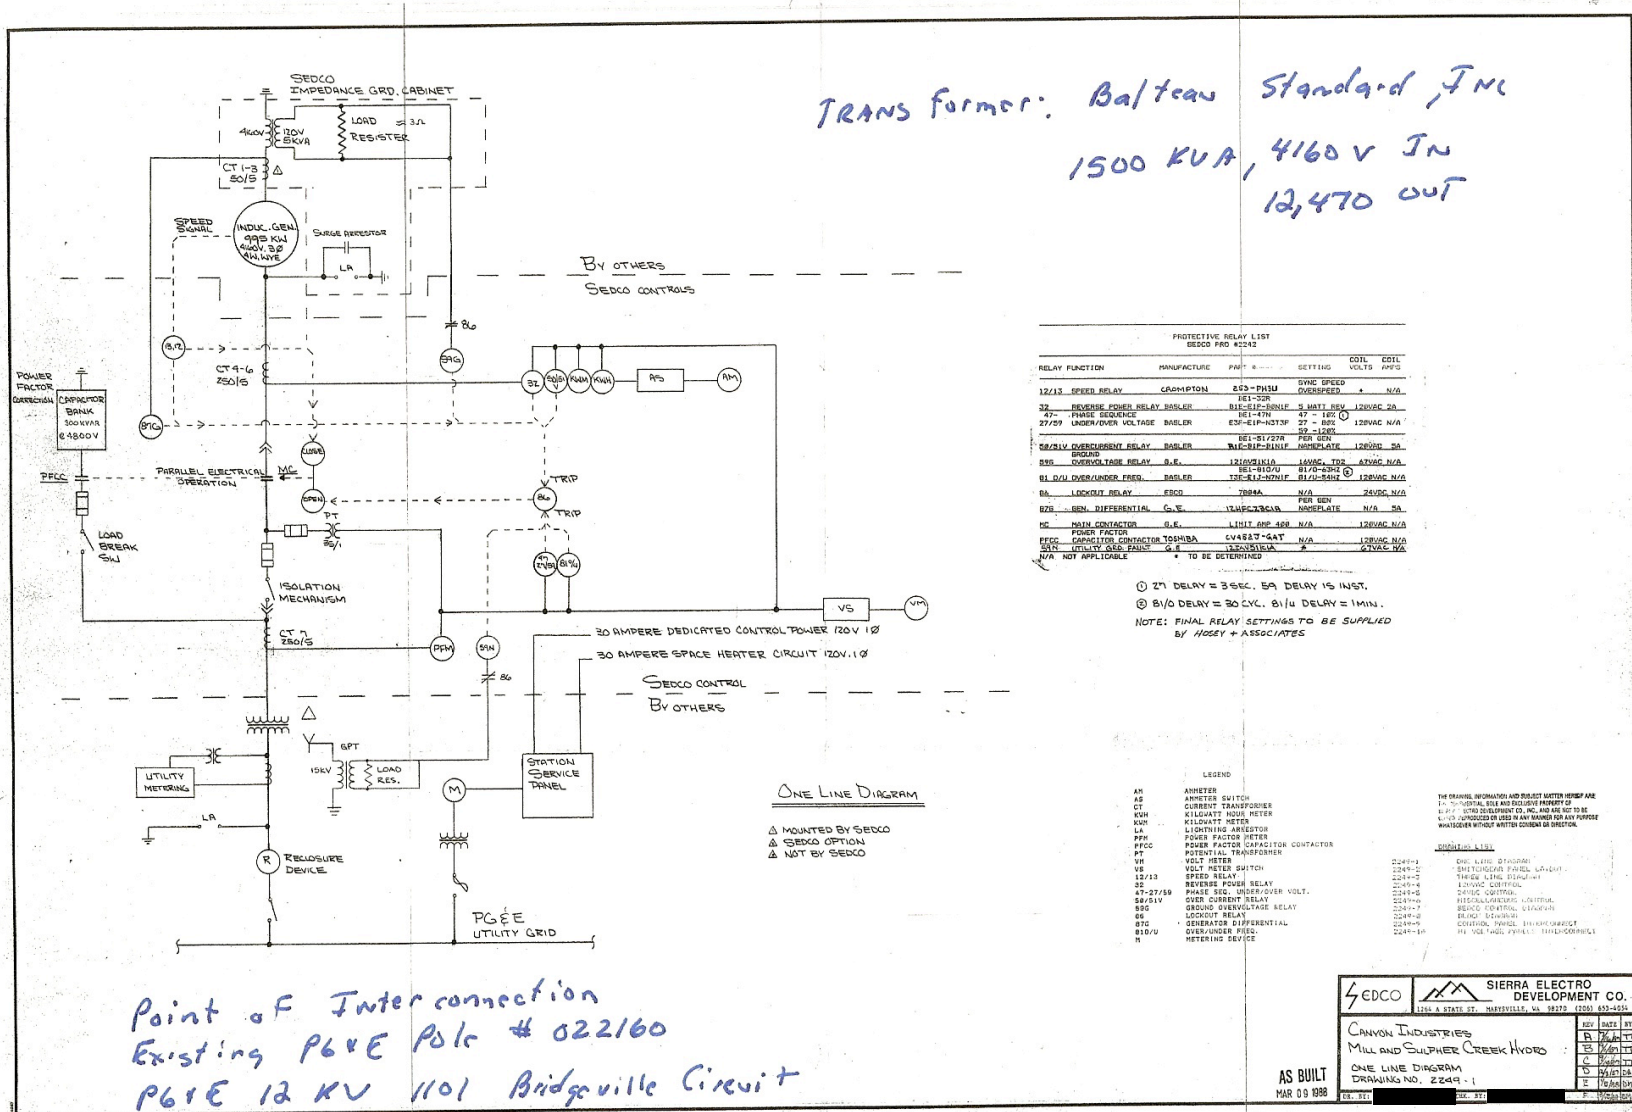 SEDCO
IMPEDANCE GRD. CABINET
4160V
120V
5KVA
LOAD
RESISTER
≈ 3Ω
CT 1-3
50/5
SPEED
SIGNAL
INDUC. GEN.
995 KW
4160V, 3Ø
4W, WYE
SURGE ARRESTOR
LA
TRANSformer: Balteau Standard, Inc
1500 KVA, 4160 V IN
12,470 OUT
BY OTHERS
SEDCO CONTROLS
86
59G
13,12
CT 4-6
250/5
32
50/51
V
KWM
KWH
AS
AM
POWER
FACTOR
CORRECTION
CAPACITOR
BANK
300 KVAR
@ 4800V
87G
CLOSE
PFCC
PARALLEL ELECTRICAL
OPERATION
MC
OPEN
TRIP
86
TRIP
PT
35/1
LOAD
BREAK
SW
47
27/59
81 O/U
ISOLATION
MECHANISM
VS
VM
CT 7
250/5
PFM
59N
86
30 AMPERE DEDICATED CONTROL POWER 120V 1Ø
30 AMPERE SPACE HEATER CIRCUIT 120V. 1Ø
SEDCO CONTROL
BY OTHERS
GPT
15KV
LOAD
RES.
UTILITY
METERING
STATION
SERVICE
PANEL
M
LA
R
RECLOSURE
DEVICE
PG&E
UTILITY GRID
ONE LINE DIAGRAM
MOUNTED BY SEDCO
SEDCO OPTION
NOT BY SEDCO
PROTECTIVE RELAY LIST
SEDCO PRO #2242
RELAY FUNCTION MANUFACTURE PART # SETTING COIL VOLTS COIL AMPS
12/13 SPEED RELAY CROMPTON 253-PH3U SYNC SPEED OVERSPEED * N/A
32 REVERSE POWER RELAY BASLER BE1-32R B1E-E1P-B0N1F 5 WATT REV 120VAC 2A
47- PHASE SEQUENCE BE1-47N 47 - 10% ①
27/59 UNDER/OVER VOLTAGE BASLER E3F-E1P-N3T3F 27 - 80% 59 -120% 120VAC N/A
50/51V OVERCURRENT RELAY BASLER BE1-51/27R PER GEN NAMEPLATE 120VAC 5A
59G GROUND OVERVOLTAGE RELAY G.E. 12IAV51K1A 16VAC, TD2 67VAC N/A
81 O/U OVER/UNDER FREQ. BASLER BE1-81O/U T3E-E1J-N7N1F 81/O-63HZ ② 81/U-54HZ 120VAC N/A
86 LOCKOUT RELAY ESCO N/A 24VDC N/A
87G GEN. DIFFERENTIAL G.E. PER GEN NAMEPLATE N/A 5A
MC MAIN CONTACTOR G.E. LIMIT AMP 400 N/A 120VAC N/A
PFCC POWER FACTOR CAPACITOR CONTACTOR TOSHIBA CV462J-GAT N/A 120VAC N/A
59N UTILITY GRD. FAULT G.E 12IAV51K1A * 67VAC N/A
N/A NOT APPLICABLE * TO BE DETERMINED
① 27 DELAY = 3 SEC. 59 DELAY IS INST.
② 81/O DELAY = 30 CYC. 81/U DELAY = 1 MIN.
NOTE: FINAL RELAY SETTINGS TO BE SUPPLIED
BY HOSEY + ASSOCIATES
LEGEND
AM AMMETER
AS AMMETER SWITCH
CT CURRENT TRANSFORMER
KWH KILOWATT HOUR METER
KWM KILOWATT METER
LA LIGHTNING ARRESTOR
PFM POWER FACTOR METER
PFCC POWER FACTOR CAPACITOR CONTACTOR
PT POTENTIAL TRANSFORMER
VM VOLT METER
VS VOLT METER SWITCH
12/13 SPEED RELAY
32 REVERSE POWER RELAY
47-27/59 PHASE SEQ. UNDER/OVER VOLT.
50/51V OVER CURRENT RELAY
59G GROUND OVERVOLTAGE RELAY
86 LOCKOUT RELAY
87G GENERATOR DIFFERENTIAL
81O/U OVER/UNDER FREQ.
M METERING DEVICE
THE DRAWING, INFORMATION AND SUBJECT MATTER HEREOF ARE
SOLE AND EXCLUSIVE PROPERTY OF
DEVELOPMENT CO., INC., AND ARE NOT TO BE
REPRODUCED OR USED IN ANY MANNER FOR ANY PURPOSE
WHATSOEVER WITHOUT WRITTEN CONSENT OR DIRECTION.
DRAWING LIST
2249-1 ONE LINE DIAGRAM
2249-2 SWITCHGEAR PANEL LAYOUT
2249-3 THREE LINE DIAGRAM
2249-4 120VAC CONTROL
2249-5 24VDC CONTROL
2249-6 MISCELLANEOUS CONTROL
2249-7
2249-8
2249-9 CONTROL PANEL INTERCONNECT
Point of Interconnection
Existing PG&E Pole # 022160
PG&E 12 KV 1101 Bridgeville Circuit
AS BUILT
MAR 09 1988
SEDCO
SIERRA ELECTRO
DEVELOPMENT CO.
1264 A STATE ST. MARYSVILLE, WA 98270 (206) 653-4054
CANYON INDUSTRIES
MILL AND SULPHER CREEK HYDRO
ONE LINE DIAGRAM
DRAWING NO. 2249-1
REV DATE BY
A
B
C
D
E
F
DR. BY: CHK. BY: